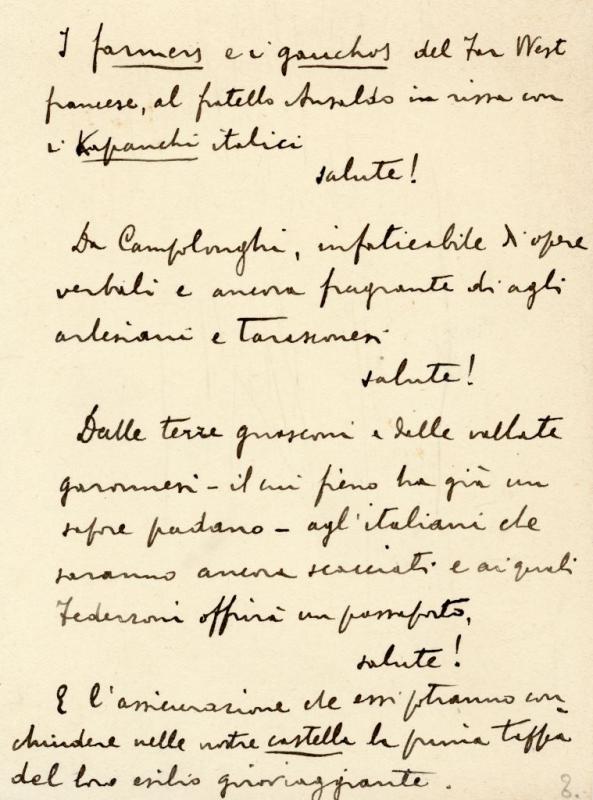 I farmers e i gauchos del Far West
francese, al fratello Ansaldo in rissa con
i Kapanchi italici
salute!
Da Campolonghi, infaticabile di opere
verbali e ancora fragrante di agli
arlesiani e tarasconesi
salute!
Dalle terre guasconi e dalle vallate
garonnesi - il cui fieno ha già un
sapore padano - agl'italiani che
saranno ancora scacciati e ai quali
Federzoni offrirà un passaporto,
salute!
E l'assicurazione che essi potranno con=
chiudere nelle nostre castella la prima tappa
del loro esilio giroviaggiante.